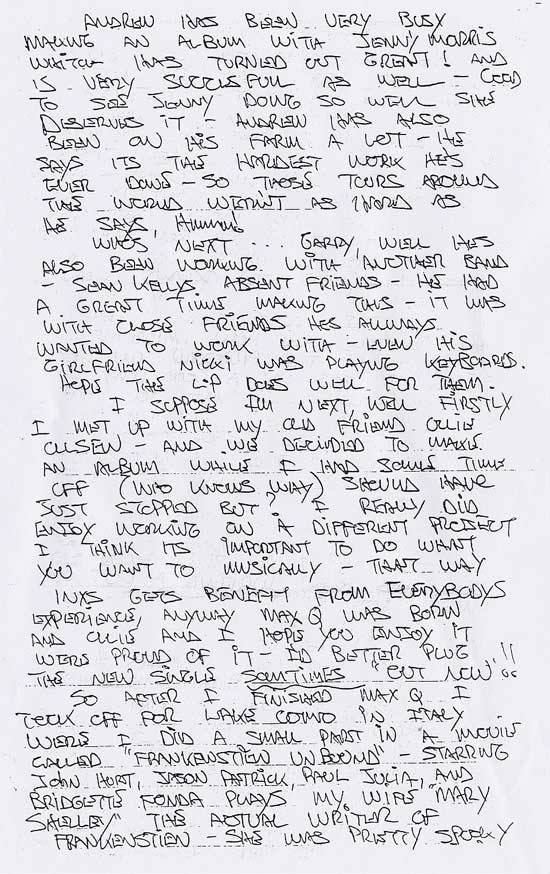 ANDREW HAS BEEN VERY BUSY
MAKING AN ALBUM WITH JENNY MORRIS
WHITCH HAS TURNED OUT GREAT! AND
IS VERY SUCCESFULL AS WELL - GOOD
TO SEE JENNY DOING SO WELL SHE
DESERVES IT - ANDREW HAS ALSO
BEEN ON HIS FARM A LOT - HE
SAYS ITS THE HARDEST WORK HE'S
EVER DONE - SO THOSE TOURS AROUND
THE WORLD WERN'T AS HARD AS
HE SAYS, Humm!
WHO'S NEXT ... GARRY, WELL HES
ALSO BEEN WORKING WITH ANOTHER BAND
- SEAN KELLYS ABSENT FRIENDS - HE HAD
A GREAT TIME MAKING THIS - IT WAS
WITH CLOSE FRIENDS HES ALWAYS
WANTED TO WORK WITH - EVEN HIS
GIRLFRIEND NICKI WAS PLAYING KEYBOARDS.
HOPE THE L.P DOES WELL FOR THEM.
I SUPPOSE I'M NEXT, WELL FIRSTLY
I MET UP WITH MY OLD FRIEND OLLIE
OLSEN - AND WE DECINDED TO MAKE
AN ALBUM WHILE I HAD SOME TIME
OFF (WHO KNOWS WAY) SHOULD HAVE
JUST STOPPED BUT? I REALLY DID
ENJOY WORKING ON A DIFFERENT PROJECT
I THINK ITS IMPORTANT TO DO WHAT
YOU WANT TO MUSICALLY - THAT WAY
INXS GETS BENEFIT FROM EVERYBODYS
EXPERIENCE, ANYWAY MAX Q WAS BORN
AND OLLIE AND I HOPE YOU ENJOY IT
WERE PROUD OF IT - I'D BETTER PLUG
THE NEW SINGLE SOMTIMES "OUT NOW"!!
SO AFTER I FINISHED MAX Q I
TOOK OFF FOR LAKE COMO IN ITALY
WERE I DID A SMALL PART IN A MOVIE
CALLED "FRANKENSTIEN UNBOUND" - STARRING
JOHN HURT, JASON PATRICK, PAUL JULIA, AND
BRIDGETTE FONDA PLAYS MY WIFE "MARY
SHELLEY" THE ACTUAL WRITER OF
FRANKENSTIEN - SHE WAS PRETTY SPOOKY